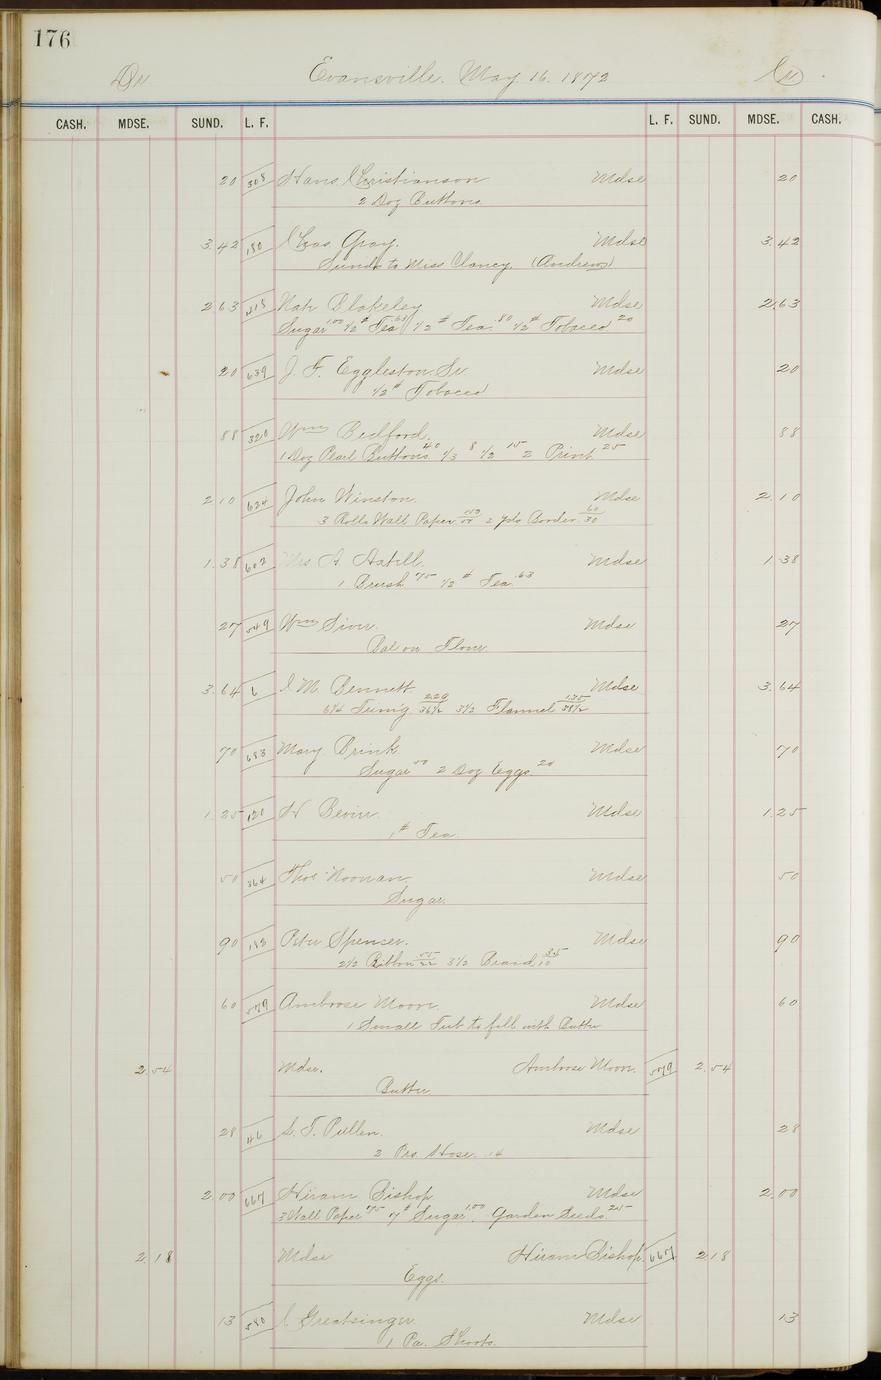 176
Dr Evansville. May 16. 1872 Cr
CASH. MDSE. SUND. L. F. L. F. SUND. MDSE. CASH.
20 308 Hans Christianson Mdse 20
2 Doz Buttons
3.42 180 Chas. Gray. Mdse 3.42
Sunds to Miss Clancy. (Andrews)
2.63 Nah Blakeley Mdse 2.63
Sugar 1.00 1/2 # Tea 63 1/2 # Tea. 80 1/2 # Tobacco 20
20 639 J. F. Eggleston. Sr. Mdse 20
1/2 # Tobacco
88 320 Wm Bedford. Mdse 88
1 Doz Pearl Buttons 40 1/3 8 1/2 15 2 Print 25
2.10 624 John Winston. Mdse 2.10
3 Rolls Wall Paper 2 yds Border 60/30
1.38 602 Mrs A. Axtell. Mdse 1.38
1 Brush 75 1/2 # Tea. 63
27 549 Wm Siver. Mdse 27
Bal on Flour
3.64 6 I. M. Bennett. Mdse 3.64
6 1/4 Trimg. 2.29/36 1/2 3 1/2 Flannel 1.35/38 1/2
70 683 Mary Brink. Mdse 70
Sugar 50 2 Doz Eggs 20
1.25 120 H Bevier. Mdse 1.25
1 # Tea.
50 364 Thos Noonan. Mdse 50
Sugar.
90 182 Peter Spenser. Mdse 90
2 1/2 Ribbon 55/22 3 1/2 Braid 35/10
60 579 Ambrose Moon. Mdse 60
1 Small Tub to fill with Butter
2.54 Mdse. Ambrose Moon. 579 2.54
Butter.
28 46 S. T. Pullen. Mdse 28
2 Prs Hose. 14
2.00 667 Hiram Bishop Mdse 2.00
3 Wall Paper 75 7 # Sugar 1.00. Garden Seeds. 25
2.18 Mdse Hiram Bishop. 667 2.18
Eggs.
13 580 C Greatsinger. Mdse 13
1 Pa. Shoots.